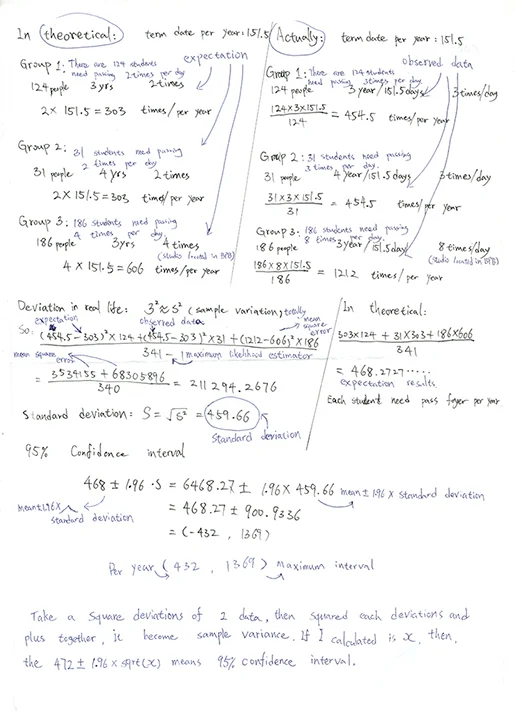 In theoretical: term date per year: 151.5
Group 1: There are 124 students
need passing 2 times per day
expectation
124 people 3 yrs 2 times
2 × 151.5 = 303 times/per year
Group 2: 31 students need passing
2 times per day
31 people 4 yrs 2 times
2 × 151.5 = 303 times/per year
Group 3: 186 students need passing
4 times per day
186 people 3 yrs 4 times
(studio located in BPB)
4 × 151.5 = 606 times/per year
Actually: term date per year: 151.5
observed data
Group 1: There are 124 students
need passing 3 times per day
124 people 3 year/151.5 days 3 times/day
124×3×151.5
124
= 454.5 times/per year
Group 2: 31 students need passing
3 times per day
31 people 4 year/151.5 days 3 times/day
31×3×151.5
31
= 454.5 times/per year
Group 3: 186 students need passing
8 times per day
186 people 3 year/151.5 days 8 times/day
(studio located in BPB)
186×8×151.5
186
= 1212 times/per year
Deviation in real life: 3² ≈ S² (sample variation) totally
mean square error
expectation observed data
So: (454.5 - 303)² × 124 + (454.5 - 303)² × 31 + (1212 - 606)² × 186
341 - 1 maximum likelihood estimator
mean square error
= 3534155 + 68305896
340
= 211294.2676
Standard deviation: S = √S² = 459.66
Standard deviation
In theoretical:
303×124 + 31×303 + 186×606
341
= 468.2727.....
expectation results.
Each student need pass foyer per year
95% Confidence interval
468 ± 1.96 · S = 6468.27 ± 1.96 × 459.66 mean ± 1.96 × standard deviation
mean ± 1.96 × standard deviation
= 468.27 ± 900.9336
= (-432, 1369)
Per year (432, 1369) maximum interval
Take a square deviations of 2 data, then squared each deviations and
plus together, it become sample variance. If I calculated is x, then,
the 472 ± 1.96 × sqrt(x) means 95% confidence interval.